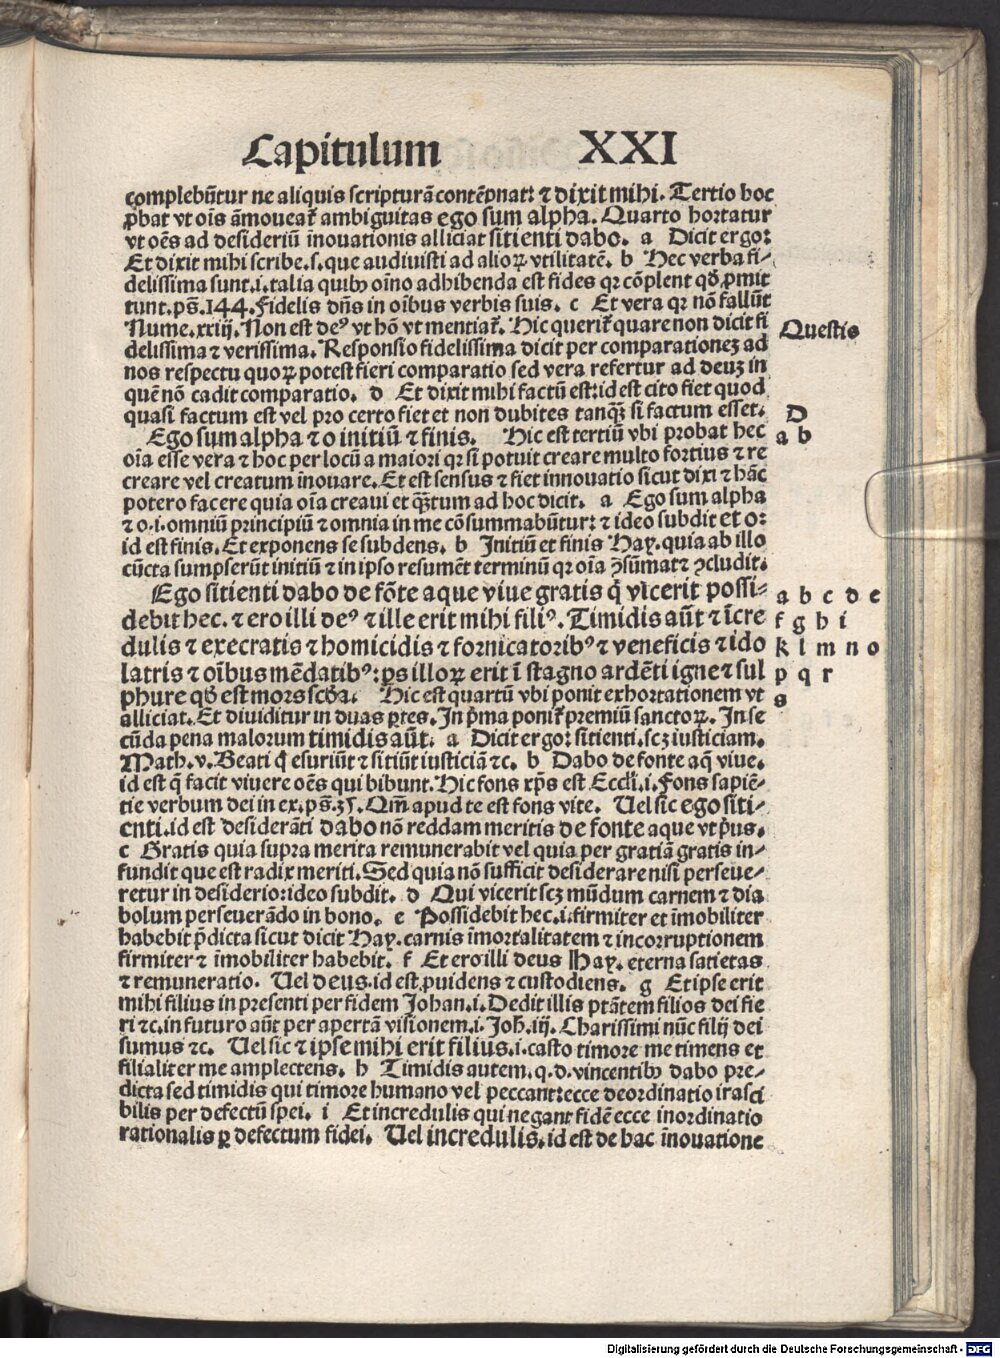 Capitulum XXI
complebūtur ne aliquis scripturā contēpnat: ⁊ dixit mihi. Tertio hoc
ꝓbat vt oīs āmoueat᷑ ambiguitas ego sum alpha. Quarto hortatur
vt oēs ad desideriū īnouationis alliciat sitienti dabo. a Dicit ergo:
Et dixit mihi scribe.s. que audiuisti ad alioꝝ vtilitatē. b Hec verba fi-
delissima sunt.i. talia quibꝰ oīno adhibenda est fides qꝛ cōplent qđ ꝓmit
tunt. ps̄.144. Fidelis dn̄s in oībus verbis suis. c Et vera qꝛ nō fallūt
Nume.xxiij. Non est deꝰ vt hō vt mentiat᷑. Hic querit᷑ quare non dicit fi
Questis
delissima ⁊ verissima. Responsio fidelissima dicit per comparationeꝫ ad
nos respectu quoꝝ potest fieri comparatio sed vera refertur ad deuꝫ in
quē nō cadit comparatio. d Et dixit mihi factū est: id est cito fiet quod
quasi factum est vel pro certo fiet et non dubites tanqꝫ̄ si factum esset.
D
Ego sum alpha ⁊ o initiū ⁊ finis. Hic est tertiū vbi probat hec
a b
oīa esse vera ⁊ hoc per locū a maiori qꝛ si potuit creare multo fortius ⁊ re
creare vel creatum inouare. Et est sensus ⁊ fiet innouatio sicut dixi ⁊ hāc
potero facere quia oīa creaui et qꝫ̄tum ad hoc dicit. a Ego sum alpha
⁊ o.i. omniū principiū ⁊ omnia in me cōsummabūtur: ⁊ ideo subdit et o:
id est finis. Et exponens se subdens. b Initiū et finis Hay. quia ab illo
cūcta sumpserūt initiū ⁊ in ipso resumēt terminū qꝛ oīa ꝯsūmat ⁊ ꝯcludit.
Ego sitienti dabo de fōte aque viue gratis q̇ vicerit possi-
a b c d e
debit hec. ⁊ ero illi deꝰ ⁊ ille erit mihi filiꝰ. Timidis aūt ⁊ īcre
f g h i
dulis ⁊ execratis ⁊ homicidis ⁊ fornicatoribꝰ ⁊ veneficis ⁊ ido
k l m n o
latris ⁊ oībus mēdatibꝰ: ꝑs illoꝝ erit ī stagno ardēti igne ⁊ sul
p q r
phure qđ est mors scđa. Hic est quartū vbi ponit exhortationem vt
s
alliciat. Et diuiditur in duas ꝑtes. In pͥma ponit᷑ premiū sanctoꝝ. In se
cūda pena malorum timidis aūt. a Dicit ergo: sitienti. scꝫ iusticiam.
Math.v. Beati q̇ esuriūt ⁊ sitiūt iusticiā ⁊c. b Dabo de fonte aq̄ viue.
id est q̄ facit viuere oēs qui bibunt. Hic fons xp̄s est Eccl̄i.i. Fons sapiē-
tie verbum dei in ex. ps̄.35. Qm̄ apud te est fons vite. Uel sic ego siti-
enti. id est desiderāti dabo nō reddam meritis de fonte aque vt pͥus.
c Gratis quia supra merita remunerabit vel quia per gratiā gratis in-
fundit que est radix meriti. Sed quia nō sufficit desiderare nisi perseue-
retur in desiderio: ideo subdit. d Qui vicerit scꝫ mūdum carnem ⁊ dia
bolum perseuerādo in bono. e Possidebit hec.i. firmiter et īmobiliter
habebit p̄dicta sicut dicit Hay. carnis īmortalitatem ⁊ incorruptionem
firmiter ⁊ īmobiliter habebit. f Et ero illi deus Hay. eterna satietas
⁊ remuneratio. Uel deus. id est ꝓuidens ⁊ custodiens. g Et ipse erit
mihi filius in presenti per fidem Johan.i. Dedit illis ptātem filios dei fie
ri ⁊c. in futuro aūt per apertā visionem.i. Joh̄.iij. Charissimi nūc filij dei
sumus ⁊c. Uel sic ⁊ ipse mihi erit filius.i. casto timore me timens et
filialiter me amplectens. h Timidis autem. q.d. vincentibꝰ dabo pre-
dicta sed timidis qui timore humano vel peccant: ecce deordinatio irasci
bilis per defectū spei. i Et incredulis qui negant fidē ecce inordinatio
rationalis ꝑ defectum fidei. Uel incredulis. id est de hac īnouatione
Digitalisierung gefördert durch die Deutsche Forschungsgemeinschaft - DFG